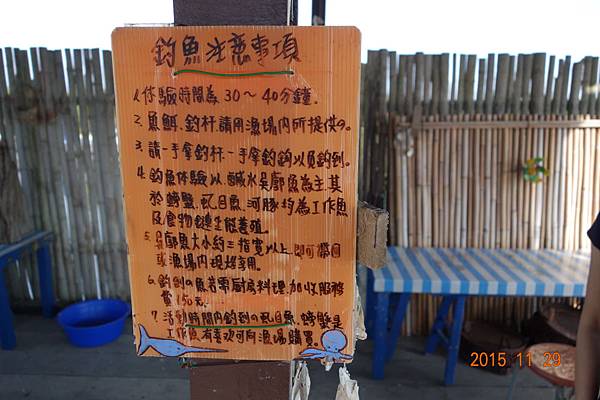 釣魚注意事項
1.体驗時間為30～40分鐘.
2.魚餌.釣杆.請用漁場內所提供の.
3.請一手拿釣杆.一手拿釣鈎以免釣到.
4.釣魚体驗以.鹹水吳郭魚為主其
於螃蟹.虱目魚.河豚均為工作魚
及食物鏈生態養殖.
5.吳郭魚大小約三指寬以上.即可帶回
或漁場內現烤享用.
6.釣到の魚若需厨房料理.加收服務
費150元.
7.活動時間內釣到の虱目魚.螃蟹是
工作魚若有喜欢可向漁場購買.
2015 11 29